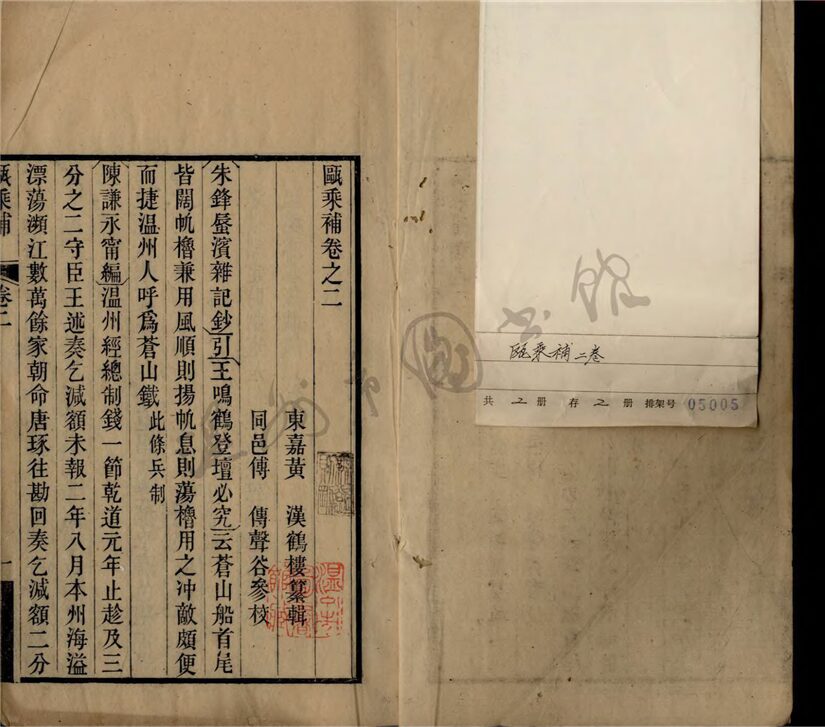 甌乘補卷之二
東嘉黃 漢鶴樓纂輯
同邑傅 傳聲谷參校
朱鋒蜃濱雜記鈔引王鳴鶴登壇必究云蒼山船首尾
皆闊帆櫓兼用風順則揚帆息則蕩櫓用之冲敵頗便
而捷溫州人呼爲蒼山鐵此條兵制
陳謙永甯編溫州經總制錢一節乾道元年止趁及三
分之二守臣王述奏乞減額未報二年八月本州海溢
漂蕩瀕江數萬餘家朝命唐琢往勘回奏乞減額二分
甌乘補
卷二
一
甌乘補 二卷
共 2 册 存 2 册 排架号 05005